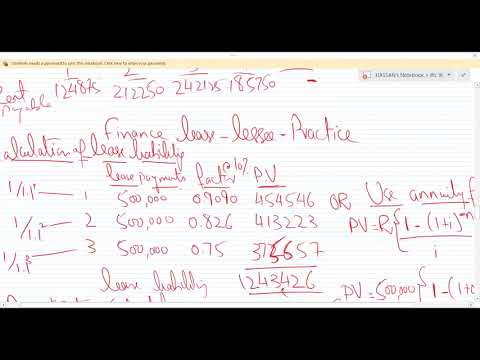 OneNote needs a password to sync this notebook. Click here to enter your password.
HASSAN's Notebook » ifrs 16
1 2
Rent Payable 124875 212250 242125 185750
Finance lease - lessee - Practice
Calculation of lease liability
lease payments factor @10% P.V
1/1.1¹ 1 500,000 0.9090 454546 OR Use annuity f
1/1.1² 2 500,000 0.826 413223 PV=R{1-(1+i)⁻ⁿ
1/1.1³ 3 500,000 0.75 375657 i
lease liability 1243426 PV=500,000{1-(1+